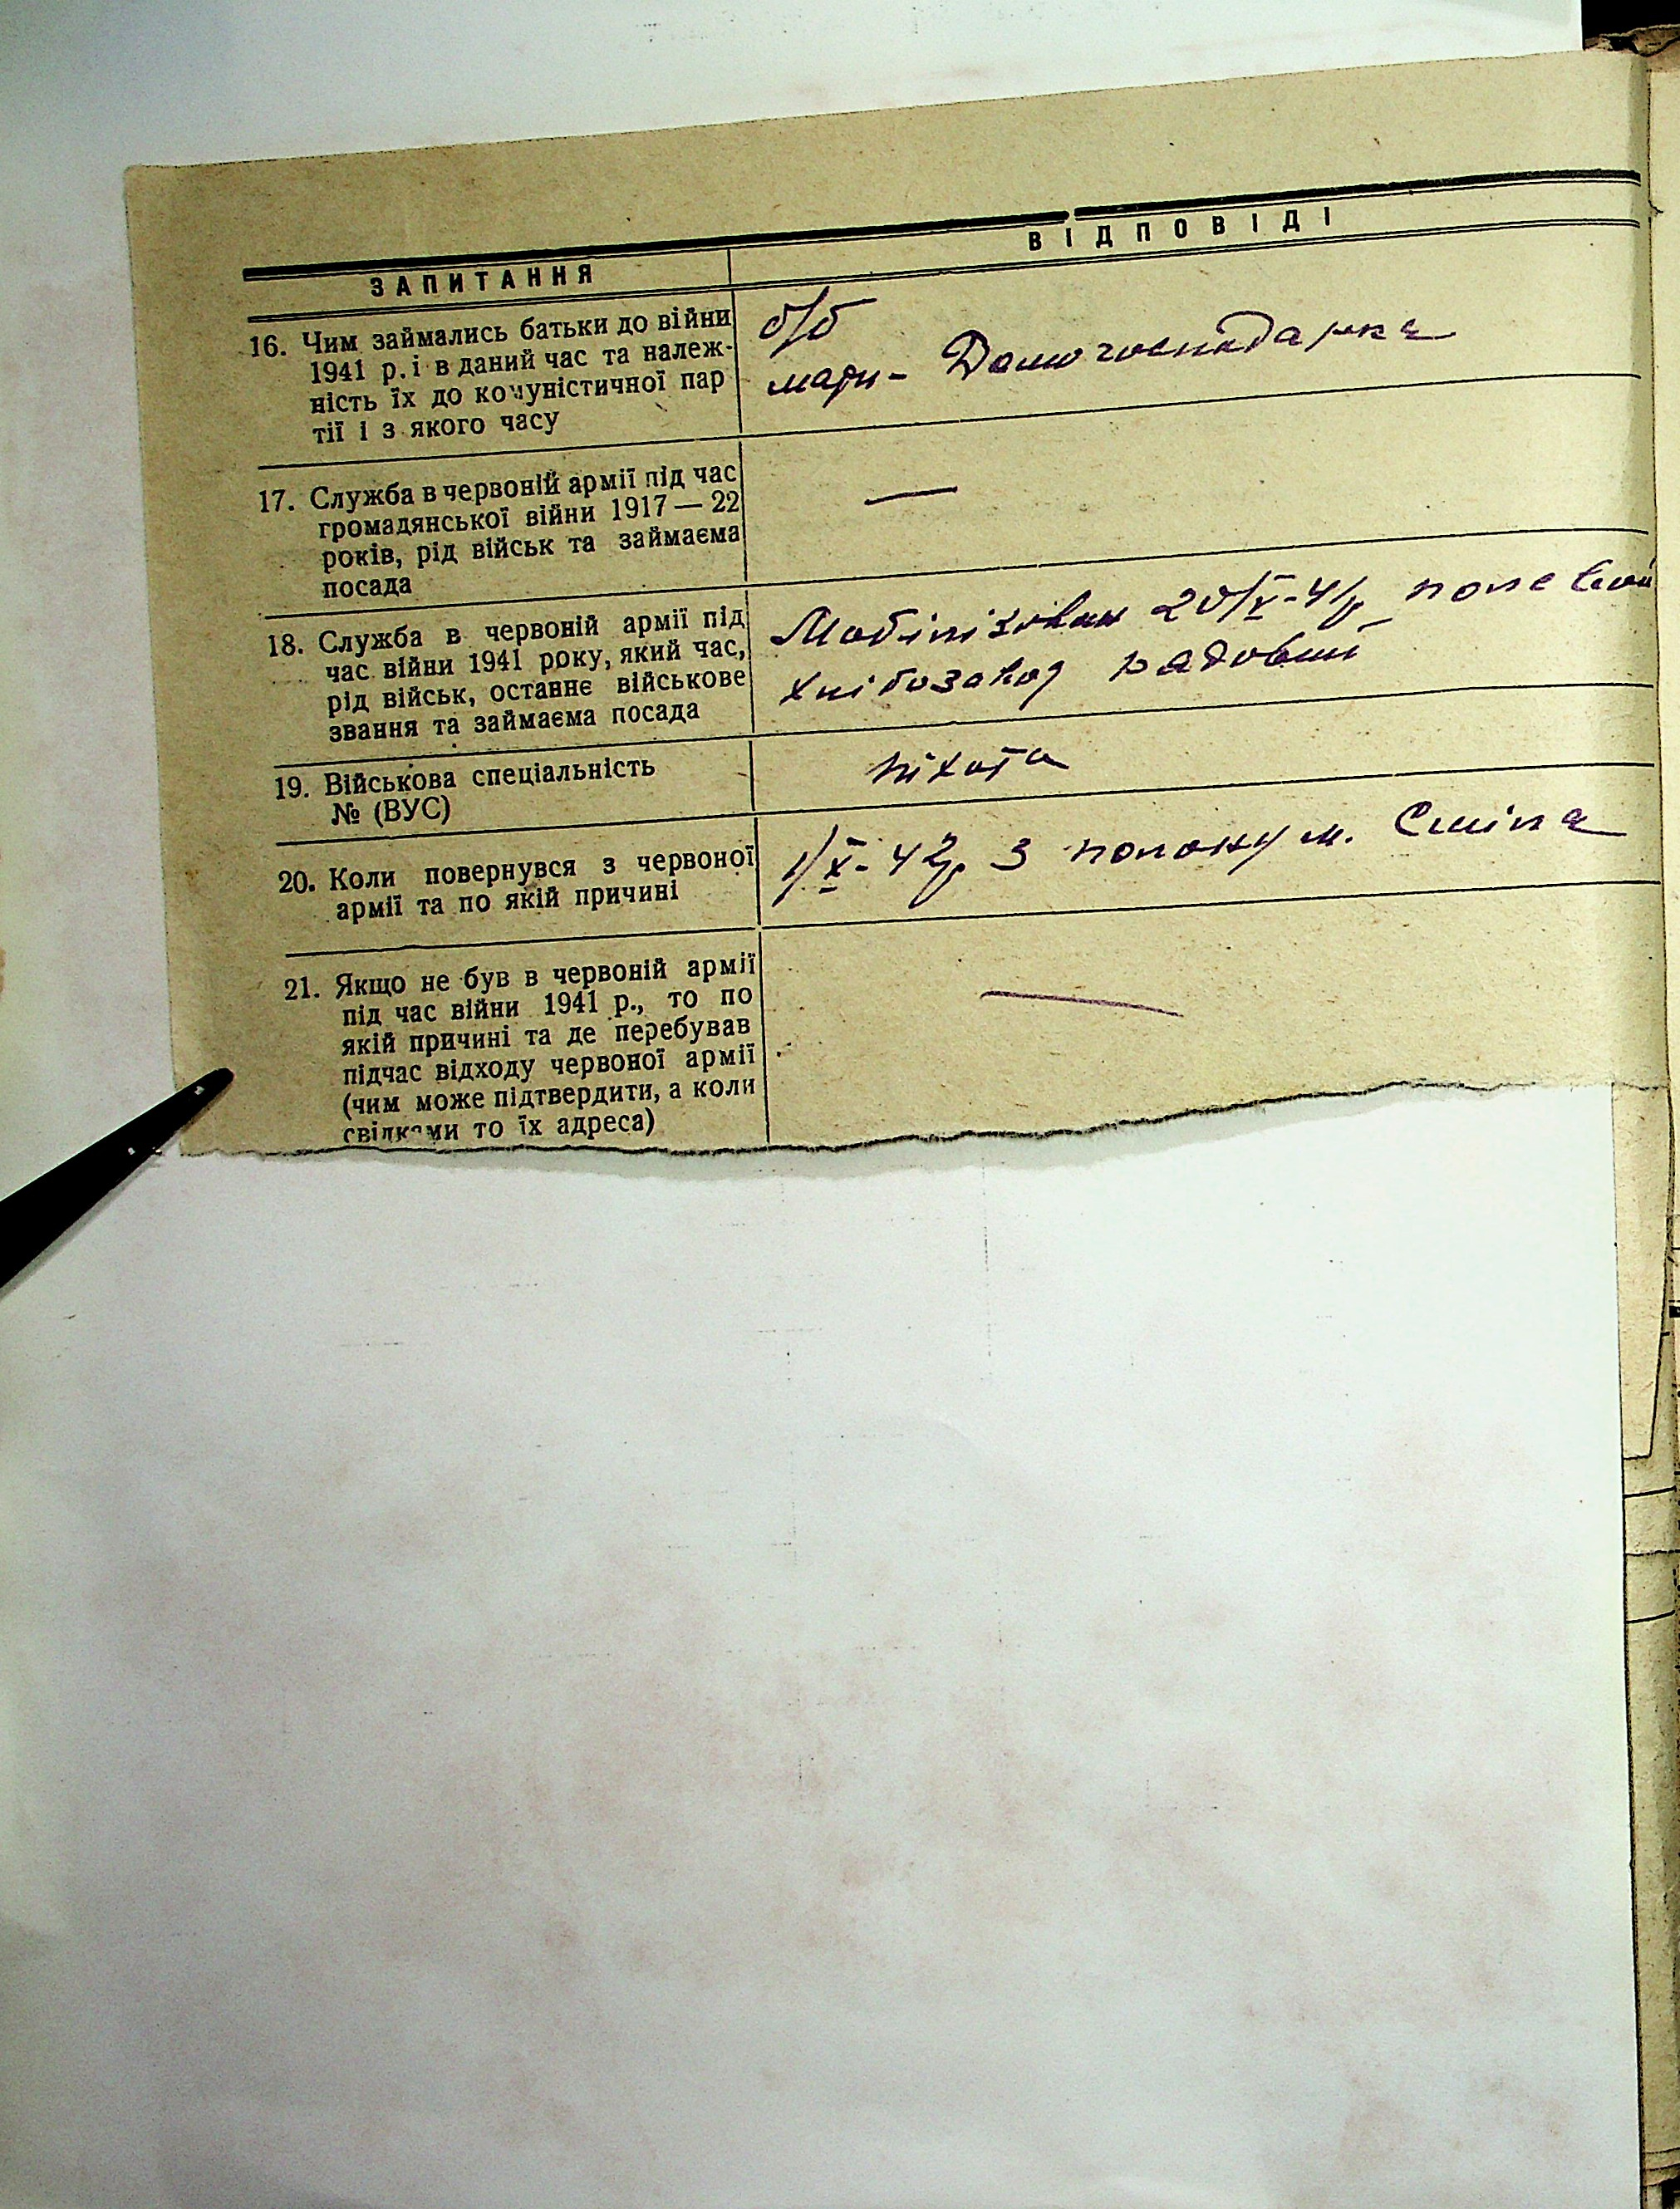 ЗАПИТАННЯ
ВІДПОВІДІ
16. Чим займались батьки до війни
1941 р. і в даний час та належ-
ність їх до комуністичної пар
тії і з якого часу
б/б
мати - Домогосподарка
17. Служба в червоній армії під час
громадянської війни 1917 — 22
років, рід військ та займаєма
посада
—
18. Служба в червоній армії під
час війни 1941 року, який час,
рід військ, останнє військове
звання та займаєма посада
Мобілізован 20/X-41р полевой
хлібозавод рядовий
19. Військова спеціальність
№ (ВУС)
піхота
20. Коли повернувся з червоної
армії та по якій причині
1/X-42р з полону м. Сміла
21. Якщо не був в червоній армії
під час війни 1941 р., то по
якій причині та де перебував
підчас відходу червоної армії
(чим може підтвердити, а коли
свідками то їх адреса)
—